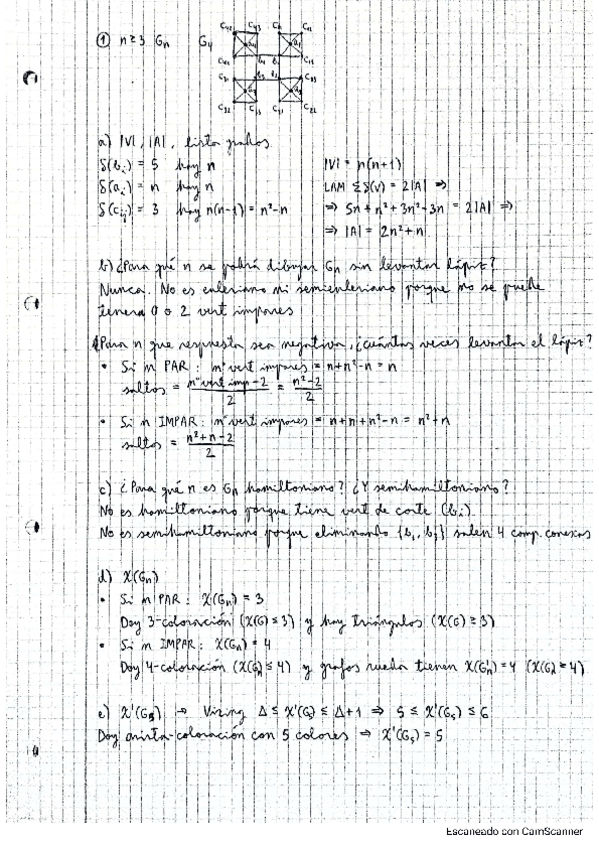 ① n≥3 Gn G4
C42 C43 C12 C11
a4 a1
C41 b4 b1 C13
C31 b3 b2 C23
a3 a2
C32 C33 C21 C22
a) |V|, |A|, lista grados
δ(bi) = 5 hay n |V| = n(n+1)
δ(ai) = n hay n LAM Σδ(v) = 2|A| ⇒
δ(cij) = 3 hay n(n-1) = n²-n ⇒ 5n + n² + 3n² - 3n = 2|A| ⇒
⇒ |A| = 2n² + n
b) ¿Para qué n se podrá dibujar Gn sin levantar lápiz?
Nunca. No es euleriano ni semieuleriano porque no se puede
tener 0 o 2 vert impares
¿Para n que respuesta sea negativa, ¿cuántas veces levantar el lápiz?
• Si n PAR: nº vert impares = n+n²-n = n
saltos = nº vert imp - 2 / 2 = n²-2 / 2
• Si n IMPAR: nº vert impares = n+n+n²-n = n²+n
saltos = n²+n-2 / 2
c) ¿Para qué n es Gn hamiltoniano? ¿Y semihamiltoniano?
No es hamiltoniano porque tiene vert de corte (bi)
No es semihamiltoniano porque eliminando {bi, bj} salen 4 comp. conexas
d) χ(Gn)
• Si n PAR: χ(Gn) = 3
Doy 3-coloración (χ(G) ≤ 3) y hay triángulos (χ(G) ≥ 3)
• Si n IMPAR: χ(Gn) = 4
Doy 4-coloración (χ(Gn) ≤ 4) y grafos rueda tienen χ(Gn) = 4 (χ(Gn) ≥ 4)
e) χ'(G5) → Vizing Δ ≤ χ'(G5) ≤ Δ+1 ⇒ 5 ≤ χ'(G5) ≤ 6
Doy arista-coloración con 5 colores ⇒ χ'(G5) = 5
Escaneado con CamScanner